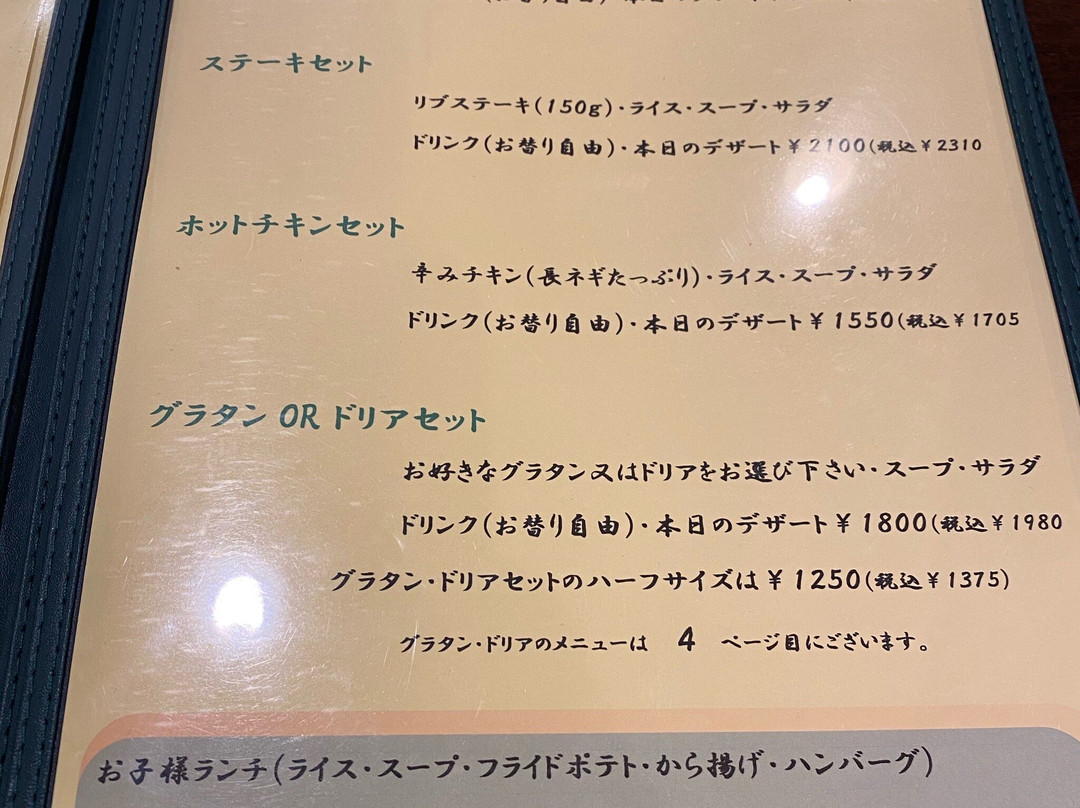 ステーキセット
リブステーキ(150g)・ライス・スープ・サラダ
ドリンク(お替り自由)・本日のデザート¥2100(税込¥2310
ホットチキンセット
辛みチキン(長ネギたっぷり)・ライス・スープ・サラダ
ドリンク(お替り自由)・本日のデザート¥1550(税込¥1705
グラタン OR ドリアセット
お好きなグラタン又はドリアをお選び下さい・スープ・サラダ
ドリンク(お替り自由)・本日のデザート¥1800(税込¥1980
グラタン・ドリアセットのハーフサイズは¥1250(税込¥1375)
グラタン・ドリアのメニューは 4 ページ目にございます。
お子様ランチ(ライス・スープ・フライドポテト・から揚げ・ハンバーグ)